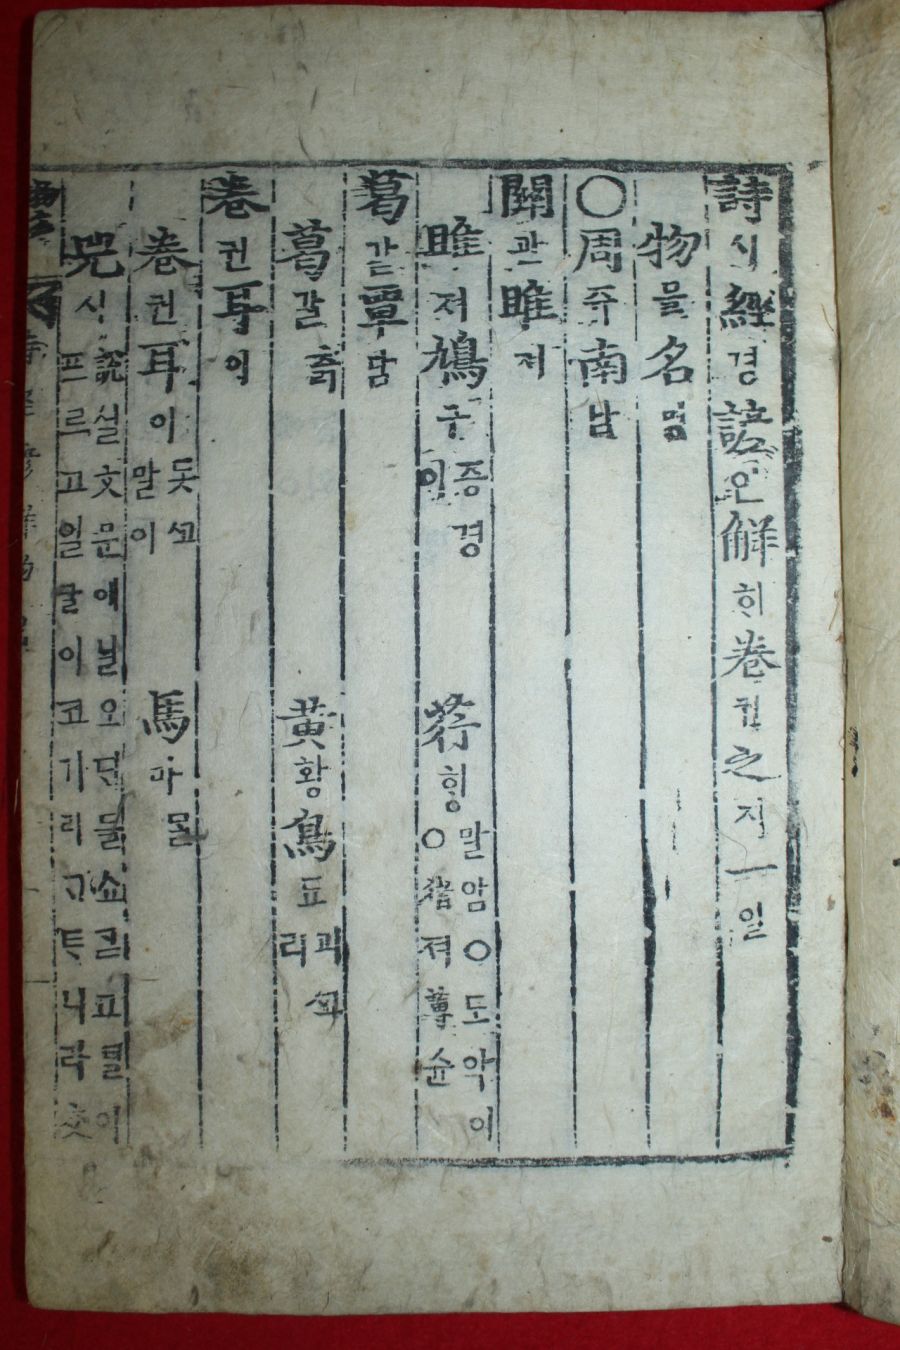 詩시經경諺언解ᄒᆡ卷권之지一일
物믈名명
○周쥬南남
關관雎져
雎져鳩구 증경이 荇ᄒᆡᆼ 말암○도악이○猪져蓴슌
葛갈覃담
葛갈 츩 黃황鳥됴 괴ᄭᅩ리
卷권耳이
卷권耳이 돗ᄭᅩ말이 馬마 ᄆᆞᆯ
兕시 說셜文문에 닐오ᄃᆡ 들쇼
프르고 일 이 코기리 ᄀᆞᄐᆞ니라